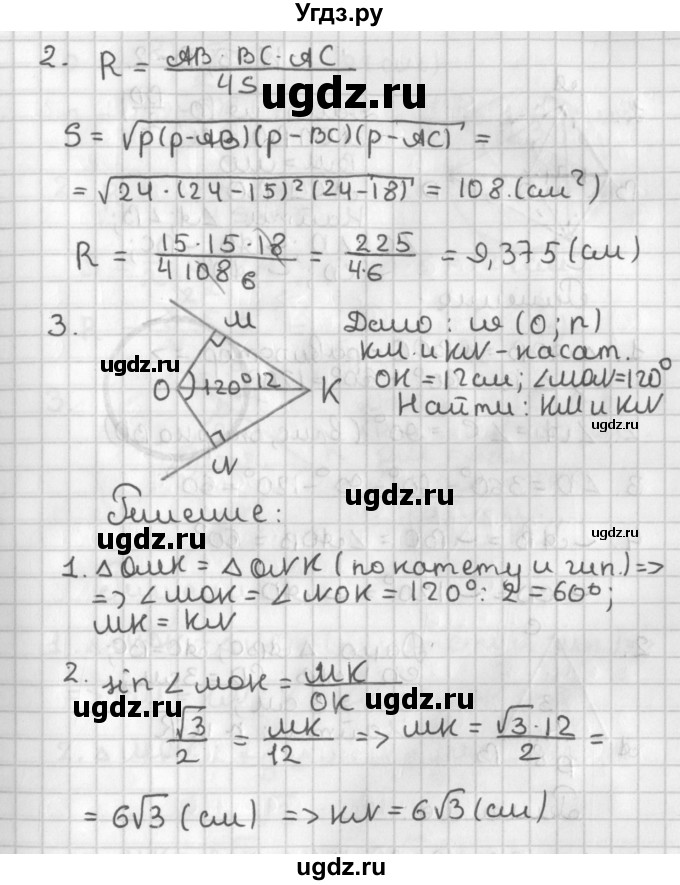 Угдз.ру
2. R = AB · BC · AC / 4S
ugdz.ru
S = √p(p-AB)(p-BC)(p-AC) =
= √24·(24-15)²(24-18) = 108 (см²)
R = 15·15·18 / 4 108 6 = 225 / 4·6 = 9,375 (см)
3. M Дано: ω (O; r)
ugdz.ru
KM и KN - касат.
O 120° 12 K OK = 12 см; ∠MON = 120°
Найти: KM и KN
ugdz.ru
N
ugdz.ru
Решение:
ugdz.ru
1. △OMK = △ONK (по катету и гип.) =>
=> ∠MOK = ∠NOK = 120° : 2 = 60°;
MK = KN
2. sin ∠MOK = MK / OK
ugdz.ru ugdz.ru
√3 / 2 = MK / 12 => MK = √3·12 / 2 =
= 6√3 (см) => KN = 6√3 (см)
ugdz.ru